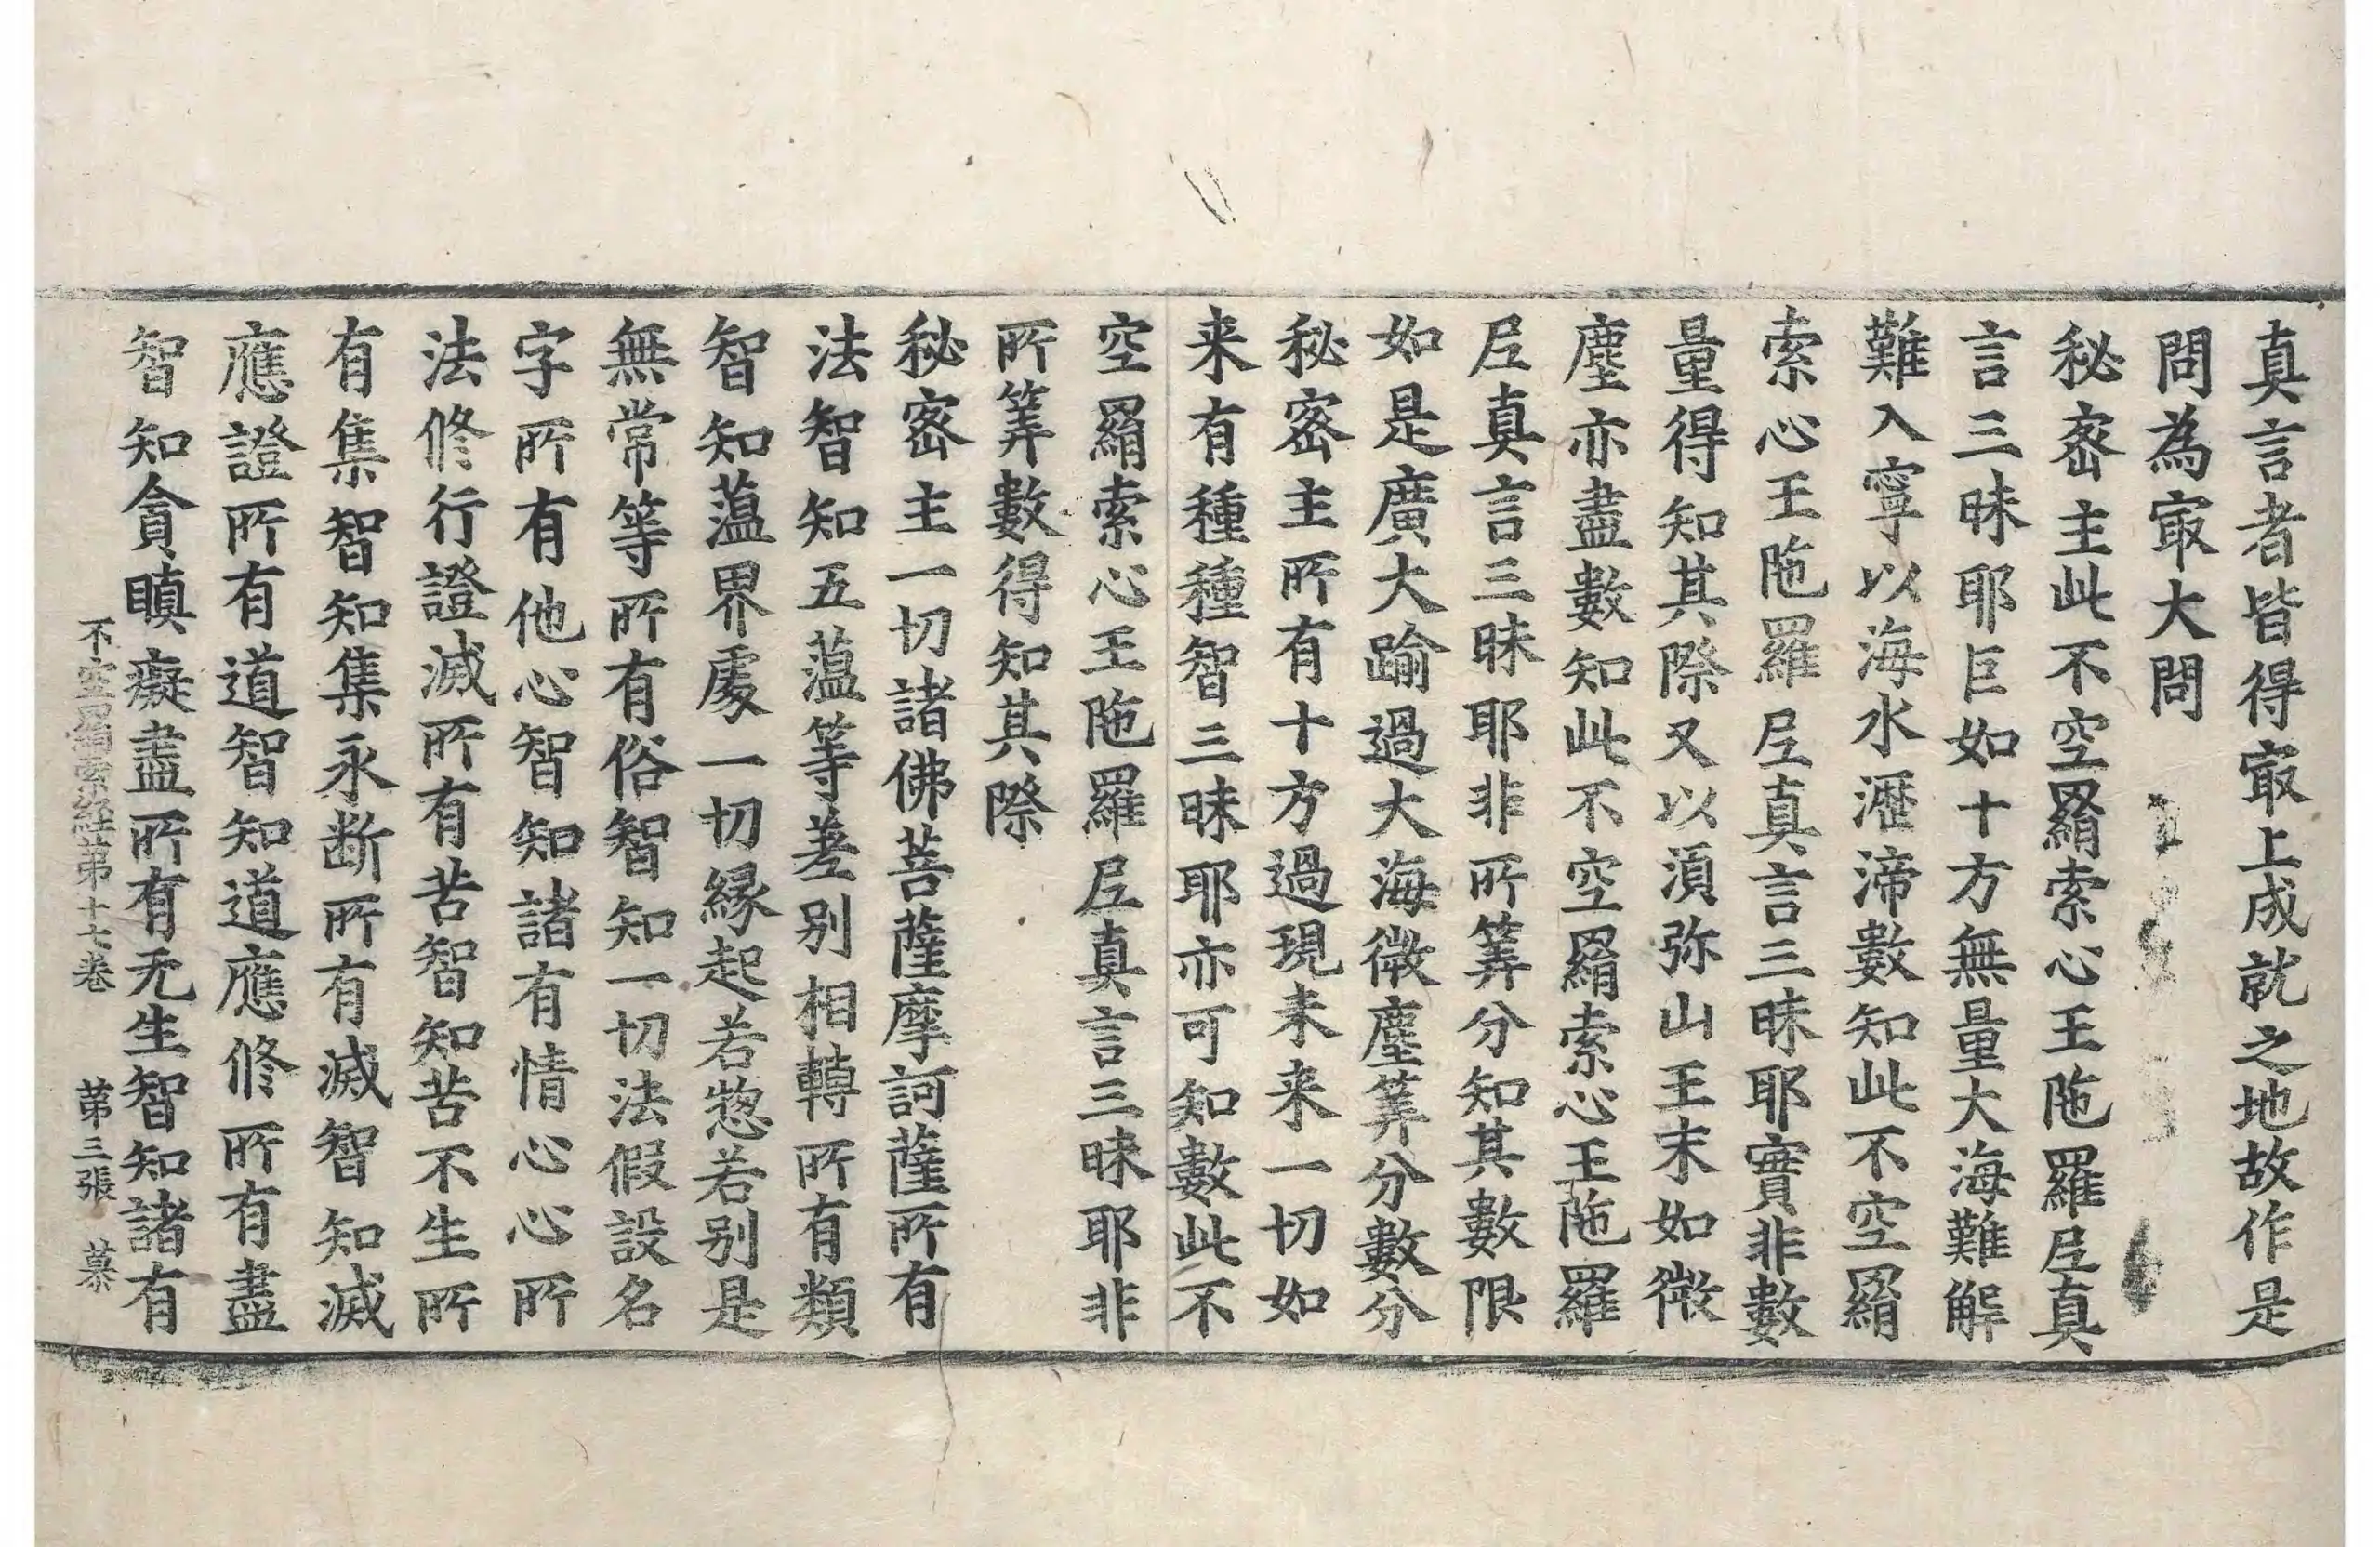 真言者皆得㝡上成就之地故作是
問為㝡大問
秘密主此不空羂索心王陁羅尼真
言三昧耶巨如十方無量大海難解
難入寧以海水瀝渧數知此不空羂
索心王陁羅尼真言三昧耶實非數
量得知其際又以湏弥山王末如微
塵亦盡數知此不空羂索心王陁羅
尼真言三昧耶非所筭分知其數限
如是廣大踰過大海微塵筭分數分
秘密主所有十方過現未来一切如
来有種種智三昧耶亦可知數此不
空羂索心王陁羅尼真言三昧耶非
所筭數得知其際
秘密主一切諸佛菩薩摩訶薩所有
法智知五蕰等差别相轉所有類
智知蕰界處一切縁起若惣若别是
無常等所有俗智知一切法假設名
字所有他心智知諸有情心心所
法修行證滅所有苦智知苦不生所
有集智知集永断所有滅智知滅
應證所有道智知道應修所有盡
智知貪瞋癡盡所有无生智知諸有
不空羂索經第十七卷　第三張　慕